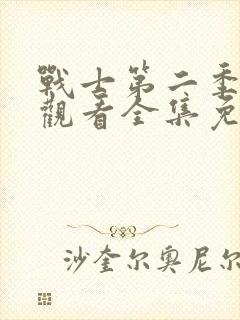 戰士第二季
觀看全集免
沙奎尔奥尼尔